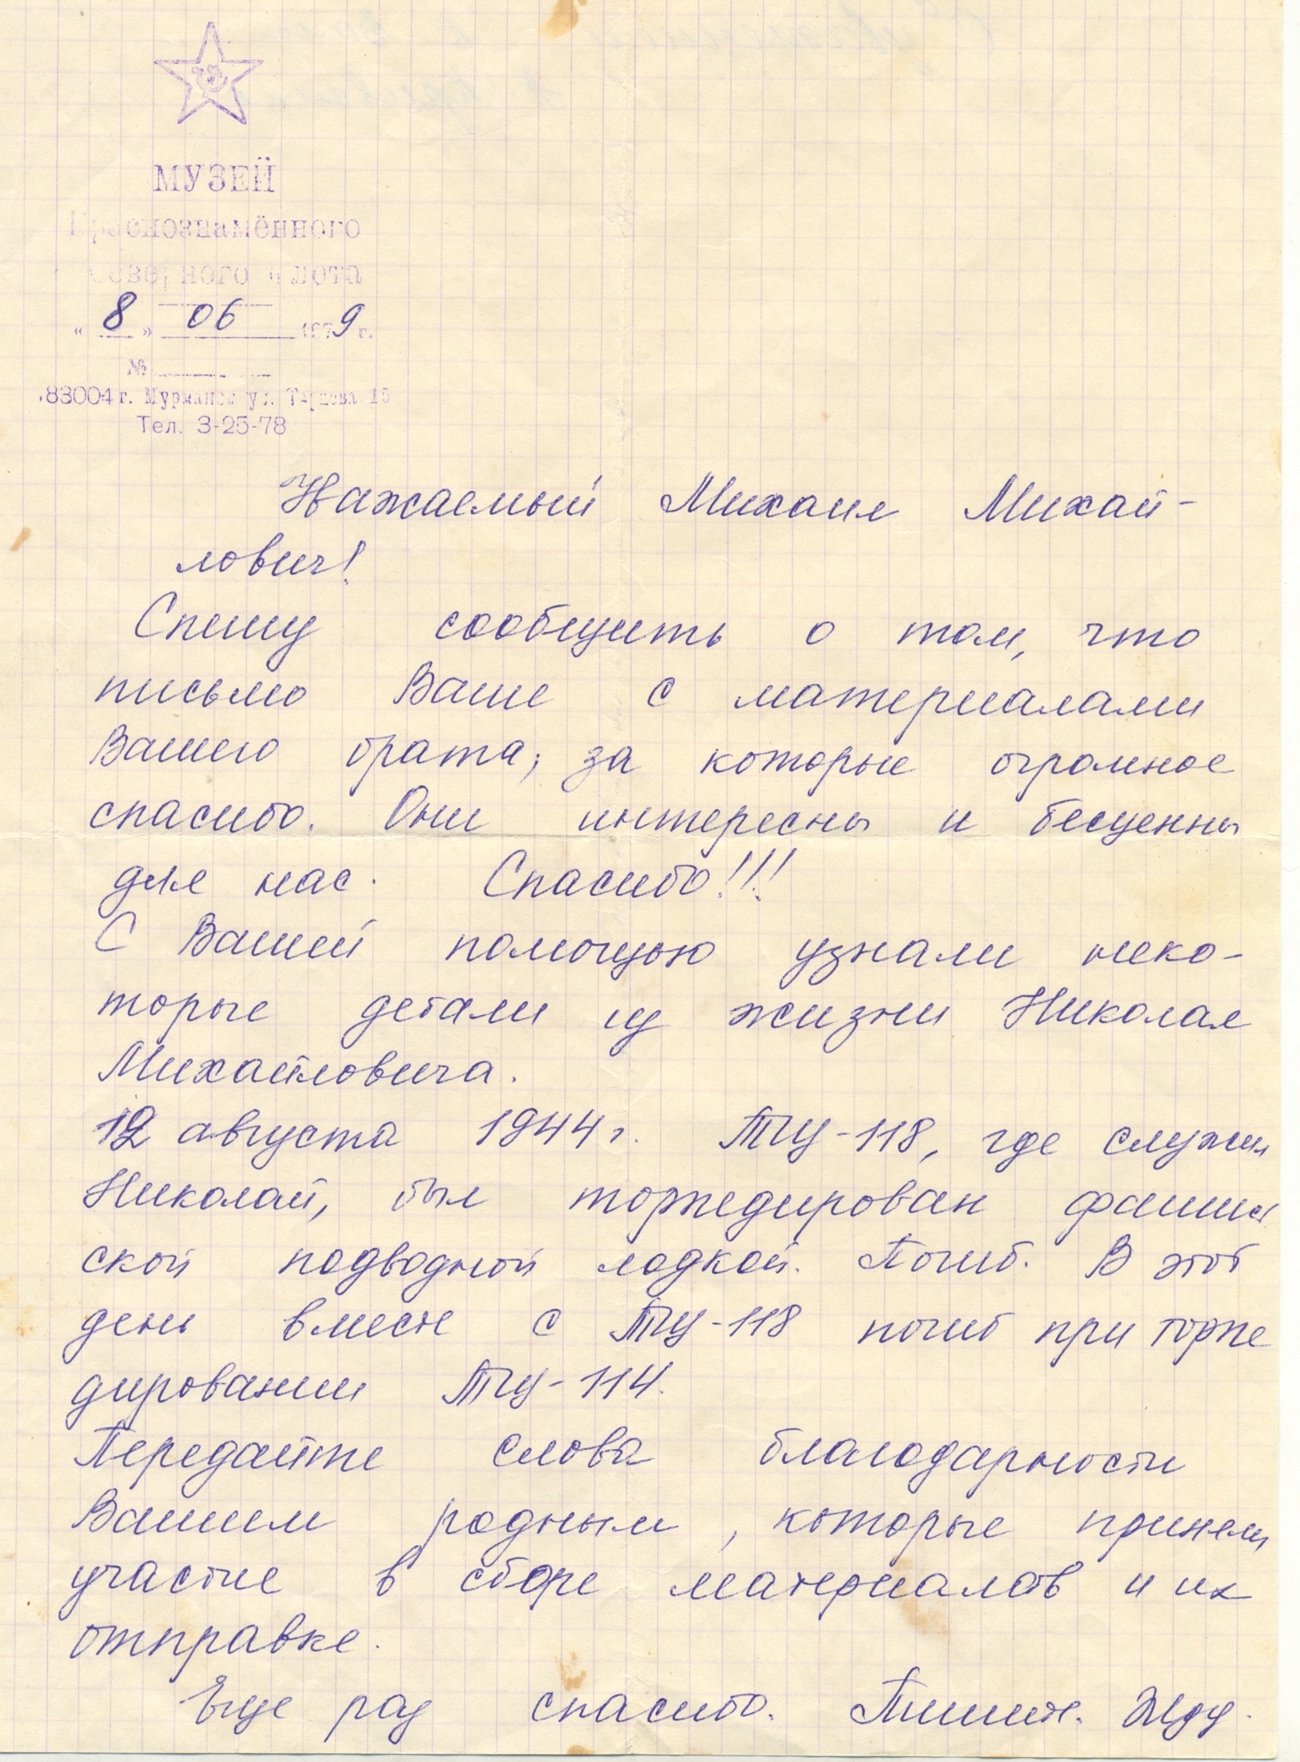 МУЗЕЙ
Краснознамённого
Северного флота
" 8 " 06 1979 г.
№
183004 г. Мурманск ул. Тарцева 15
Тел. 3-25-78
Уважаемый Михаил Михай-
лович!
Спешу сообщить о том, что
письмо Ваше с материалами
Вашего брата; за которые огромное
спасибо. Они интересны и бесценны
для нас. Спасибо!!!
С Вашей помощью узнали неко-
торые детали из жизни Николая
Михайловича.
12 августа 1944 г. ТЩ-118, где служил
Николай, был торпедирован фашист
ской подводной лодкой. Погиб. В этот
день вместе с ТЩ-118 погиб при торпе
дировании ТЩ-114.
Передайте слова благодарности
Вашим родным, которые приняли
участие в сборе материалов и их
отправке.
Еще раз спасибо. Пишите. Жду.